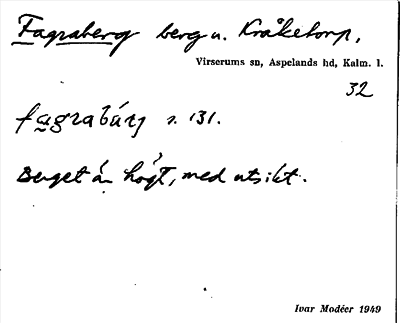 Fagraberg berg u. Kråketorp.
Virserums sn, Aspelands hd, Kalm. l.
32
fagrabárj s. 131.
Berget är högt, med utsikt.
Ivar Modéer 1949